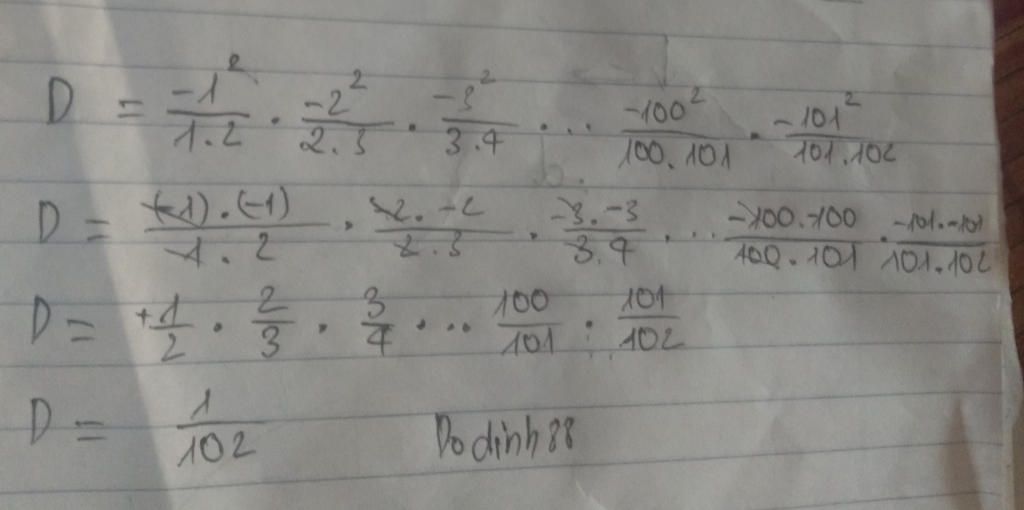 D = -1²/1.2 . -2²/2.3 . -3²/3.4 . ... -100²/100.101 . -101²/101.102
D = (-1).(-1)/1.2 . -2.-2/2.3 . -3.-3/3.4 . ... -100.-100/100.101 . -101.-101/101.102
D = +1/2 . 2/3 . 3/4 . ... 100/101 . 101/102
D = 1/102 Dodinh88